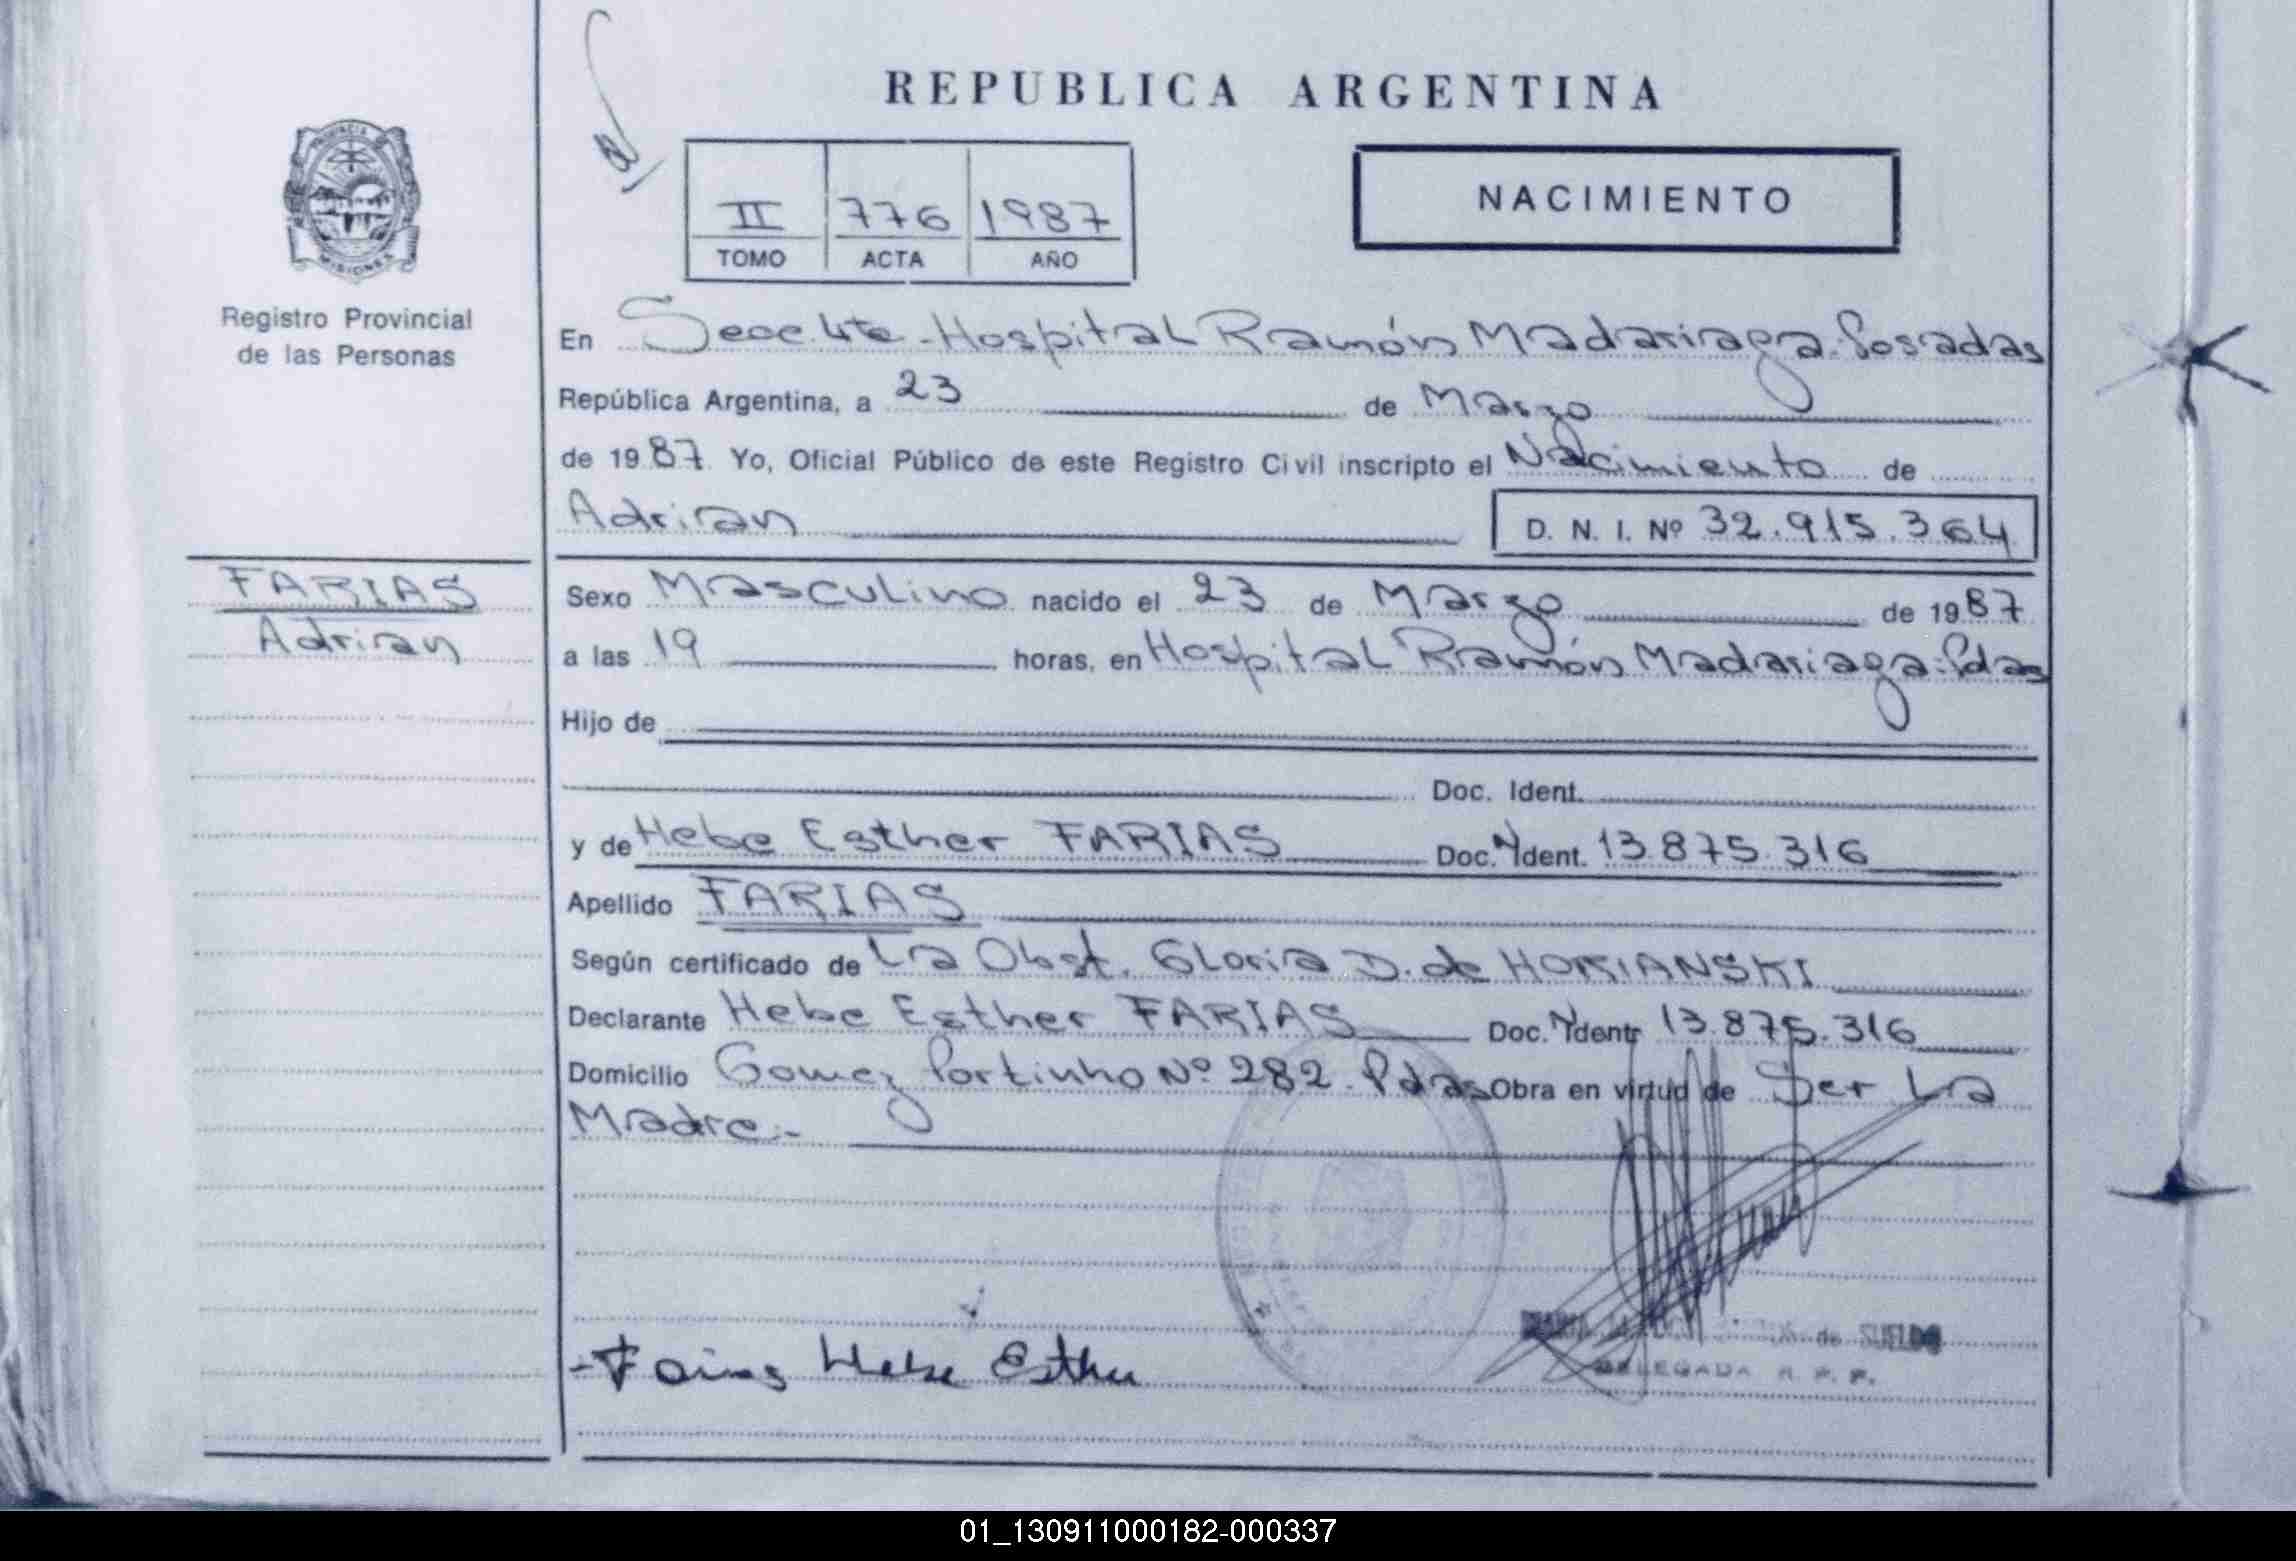 REPUBLICA ARGENTINA
PROVINCIA DE
MISIONES
Registro Provincial
de las Personas
II 776 1987
TOMO ACTA AÑO
NACIMIENTO
En Secc. 4ta - Hospital Ramón Madariaga. Posadas
República Argentina, a 23 de Marzo
de 1987 Yo, Oficial Público de este Registro Civil inscripto el Nacimiento de
Adrian D. N. I. Nº 32.915.364
FARIAS
Adrian
Sexo Masculino nacido el 23 de Marzo de 1987
a las 19 horas, en Hospital Ramón Madariaga. Pdas
Hijo de
Doc. Ident.
y de Hebe Esther FARIAS Doc. N Ident. 13.875.316
Apellido FARIAS
Según certificado de La Obst. Gloria D. de HORIANSKI
Declarante Hebe Esther FARIAS Doc. N Ident. 13.875.316
Domicilio Gomez Portinho Nº 282. Pdas Obra en virtud de Ser La
Madre.-
de SUELDO
-Farias Hebe Esther
DELEGADA R. P. P.
01_130911000182-000337